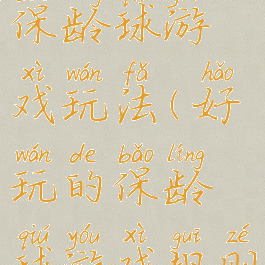 保龄球游
xì wán fǎ hǎo
戏玩法(好
wán de bǎo líng
玩的保龄
qiú yóu xì guī zé
球游戏规则